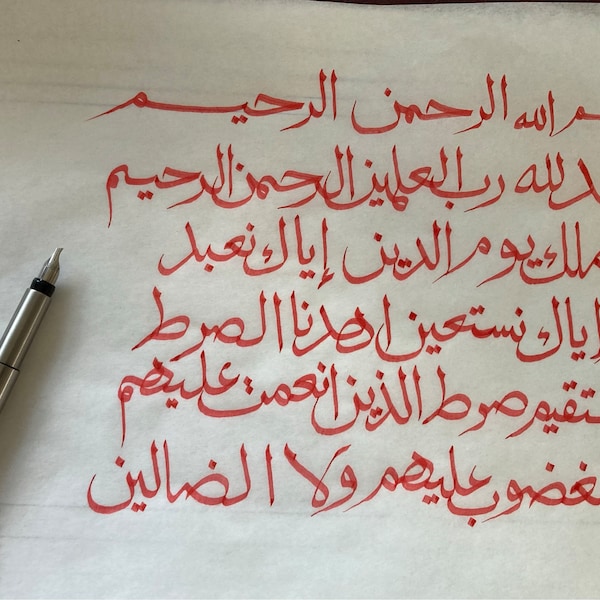 م الله الرحمن الرحيم
د لله رب العلمين الرحمن الرحيم
ملك يوم الدين إياك نعبد
إياك نستعين اهدنا الصرط
تقيم صرط الذين انعمت عليهم
غضوب عليهم ولا الضالين